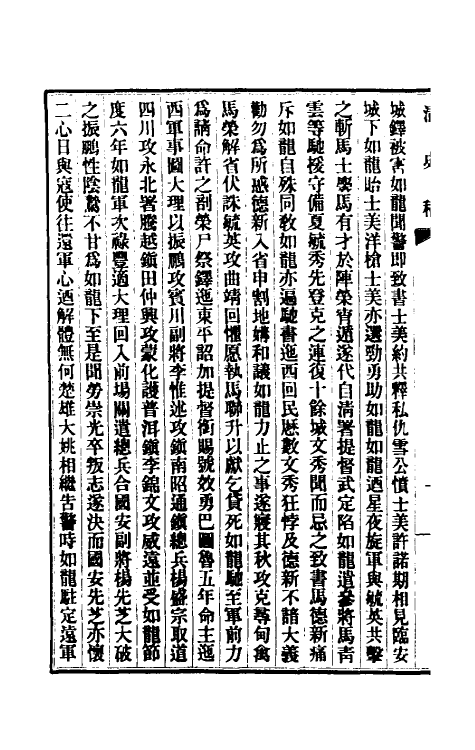 清史稿
城鐸被害如龍聞警即致書士美約共釋私仇雪公憤士美許諾期相見臨安
城下如龍貽士美洋槍士美亦選勁勇助如龍如龍迺星夜旋軍與毓英共擊
之斬馬士麐馬有才於陣榮宵遁遂代自清署提督武定陷如龍遣參將馬青
雲等馳援守備夏毓秀先登克之連復十餘城文秀聞而忌之致書馬德新痛
斥如龍自殊同敎如龍亦遍馳書迤西回民歷數文秀狂悖及德新不諳大義
勸勿爲所惑德新入省申割地媾和議如龍力止之事遂寢其秋攻克尋甸禽
馬榮解省伏誅毓英攻曲靖回懼愿執馬聯升以獻乞貸死如龍馳至軍前力
爲請命許之剖榮尸祭鐸迤東平詔加提督銜賜號效勇巴圖魯五年命主迤
西軍事圖大理以振鵬攻賓川副將李惟述攻鎭南昭通鎭總兵楊盛宗取道
四川攻永北署騰越鎭田仲興攻蒙化護普洱鎭李錦文攻威遠並受如龍節
度六年如龍軍次祿豐適大理回入前場關遣總兵合國安副將楊先芝大破
之振鵬性陰鷙不甘爲如龍下至是聞勞崇光卒叛志遂決而國安先芝亦懷
二心日與寇使往還軍心迺解體無何楚雄大姚相繼吿警時如龍駐定遠軍